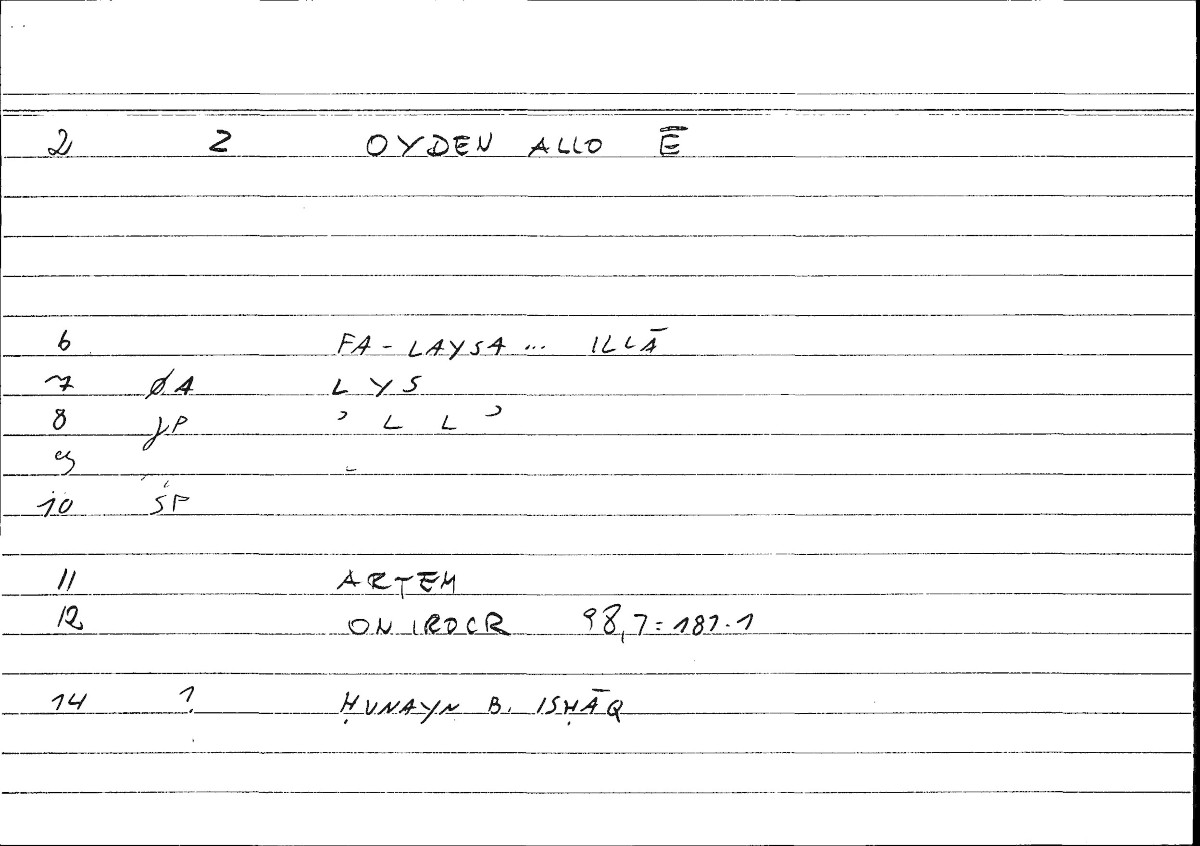 2 2 OYDEN ALLO Ē
6 FA-LAYSA... ILLĀ
7 ØA LYS
8 JP ʾLLʾ
9
10 ŚP
11 ARTEM
12 ONIROCR 98,7=181.1
14 ? ḤUNAYN B. ISḤĀQ